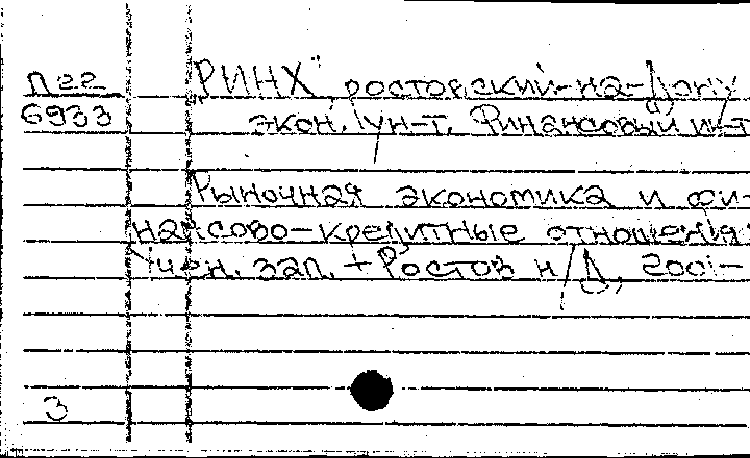 П22
6933
РИНХ" ростовский-на-Дону
экон. ун-т. Финансовый ин-т
Рыночная экономика и фи-
нансово-кредитные отношения:
Учен. зап. + Ростов н/Д, 2001-
3